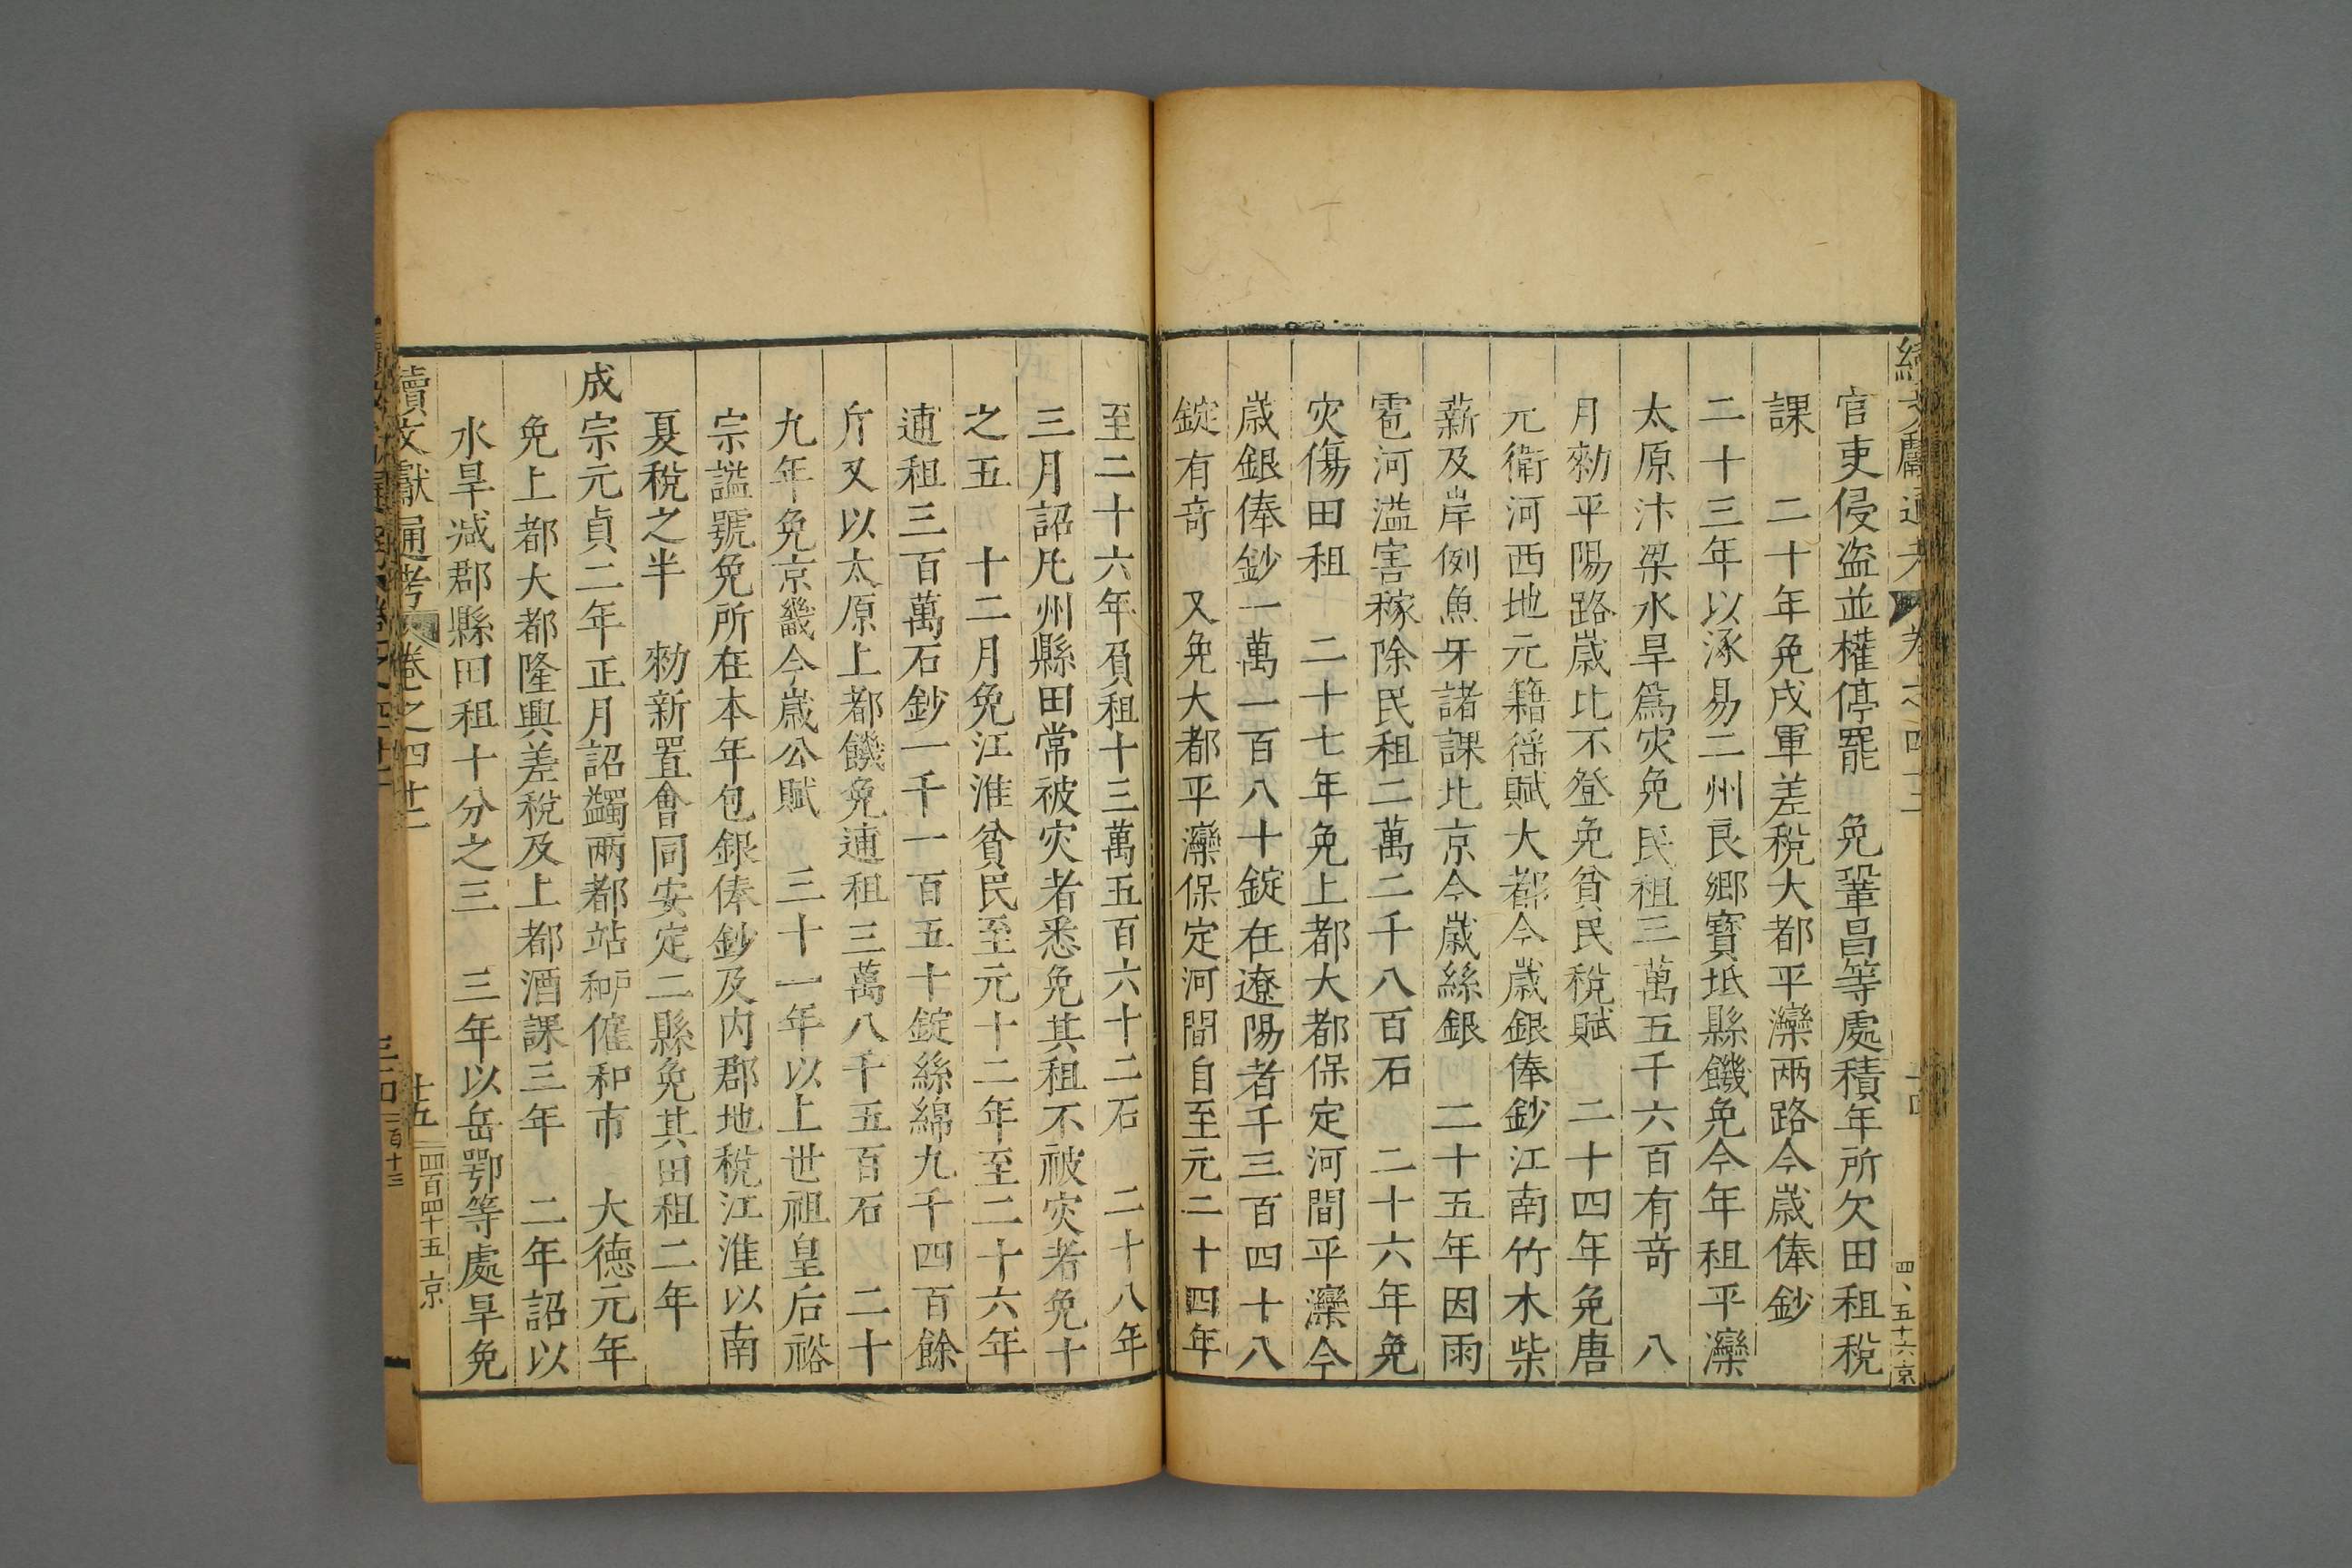 官吏侵盗並權停罷　免鞏昌等處積年所欠田租稅
課　二十年免戍軍差税大都平灤兩路今歳俸鈔
二十三年以涿易二州良鄉寳坻縣饑免今年租平灤
太原汴梁水旱爲灾免民租三萬五千六百有竒　八
月勑平陽路歳比不登免貧民稅賦　二十四年免唐
元衛河西地元籍徭賦大都今歳銀俸鈔江南竹木柴
薪及岸例魚牙諸課北京今歳絲銀　二十五年因雨
雹河溢害稼除民租二萬二千八百石　二十六年免
灾傷田租　二十七年免上都大都保定河間平灤今
歳銀俸鈔一萬一百八十錠在遼陽者千三百四十八
錠有竒　又免大都平灤保定河間自至元二十四年
至二十六年負租十三萬五百六十二石　二十八年
三月詔凡州縣田常被灾者悉免其租不被灾者免十
之五　十二月免江淮貧民至元十二年至二十六年
逋租三百萬石鈔一千一百五十錠絲綿九千四百餘
斤又以太原上都饑免逋租三萬八千五百石　二十
九年免京畿今歳公賦　三十一年以上世祖皇后裕
宗謚號免所在本年包銀俸鈔及内郡地稅江淮以南
夏稅之半　勑新置會同安定二縣免其田租二年
成宗元貞二年正月詔蠲兩都站戸和僱和市　大德元年
免上都大都隆興差稅及上都酒課三年　二年詔以
水旱减郡縣田租十分之三　三年以岳鄂等處旱免
續文獻通考　卷之四十二　十五　四百四十五　京